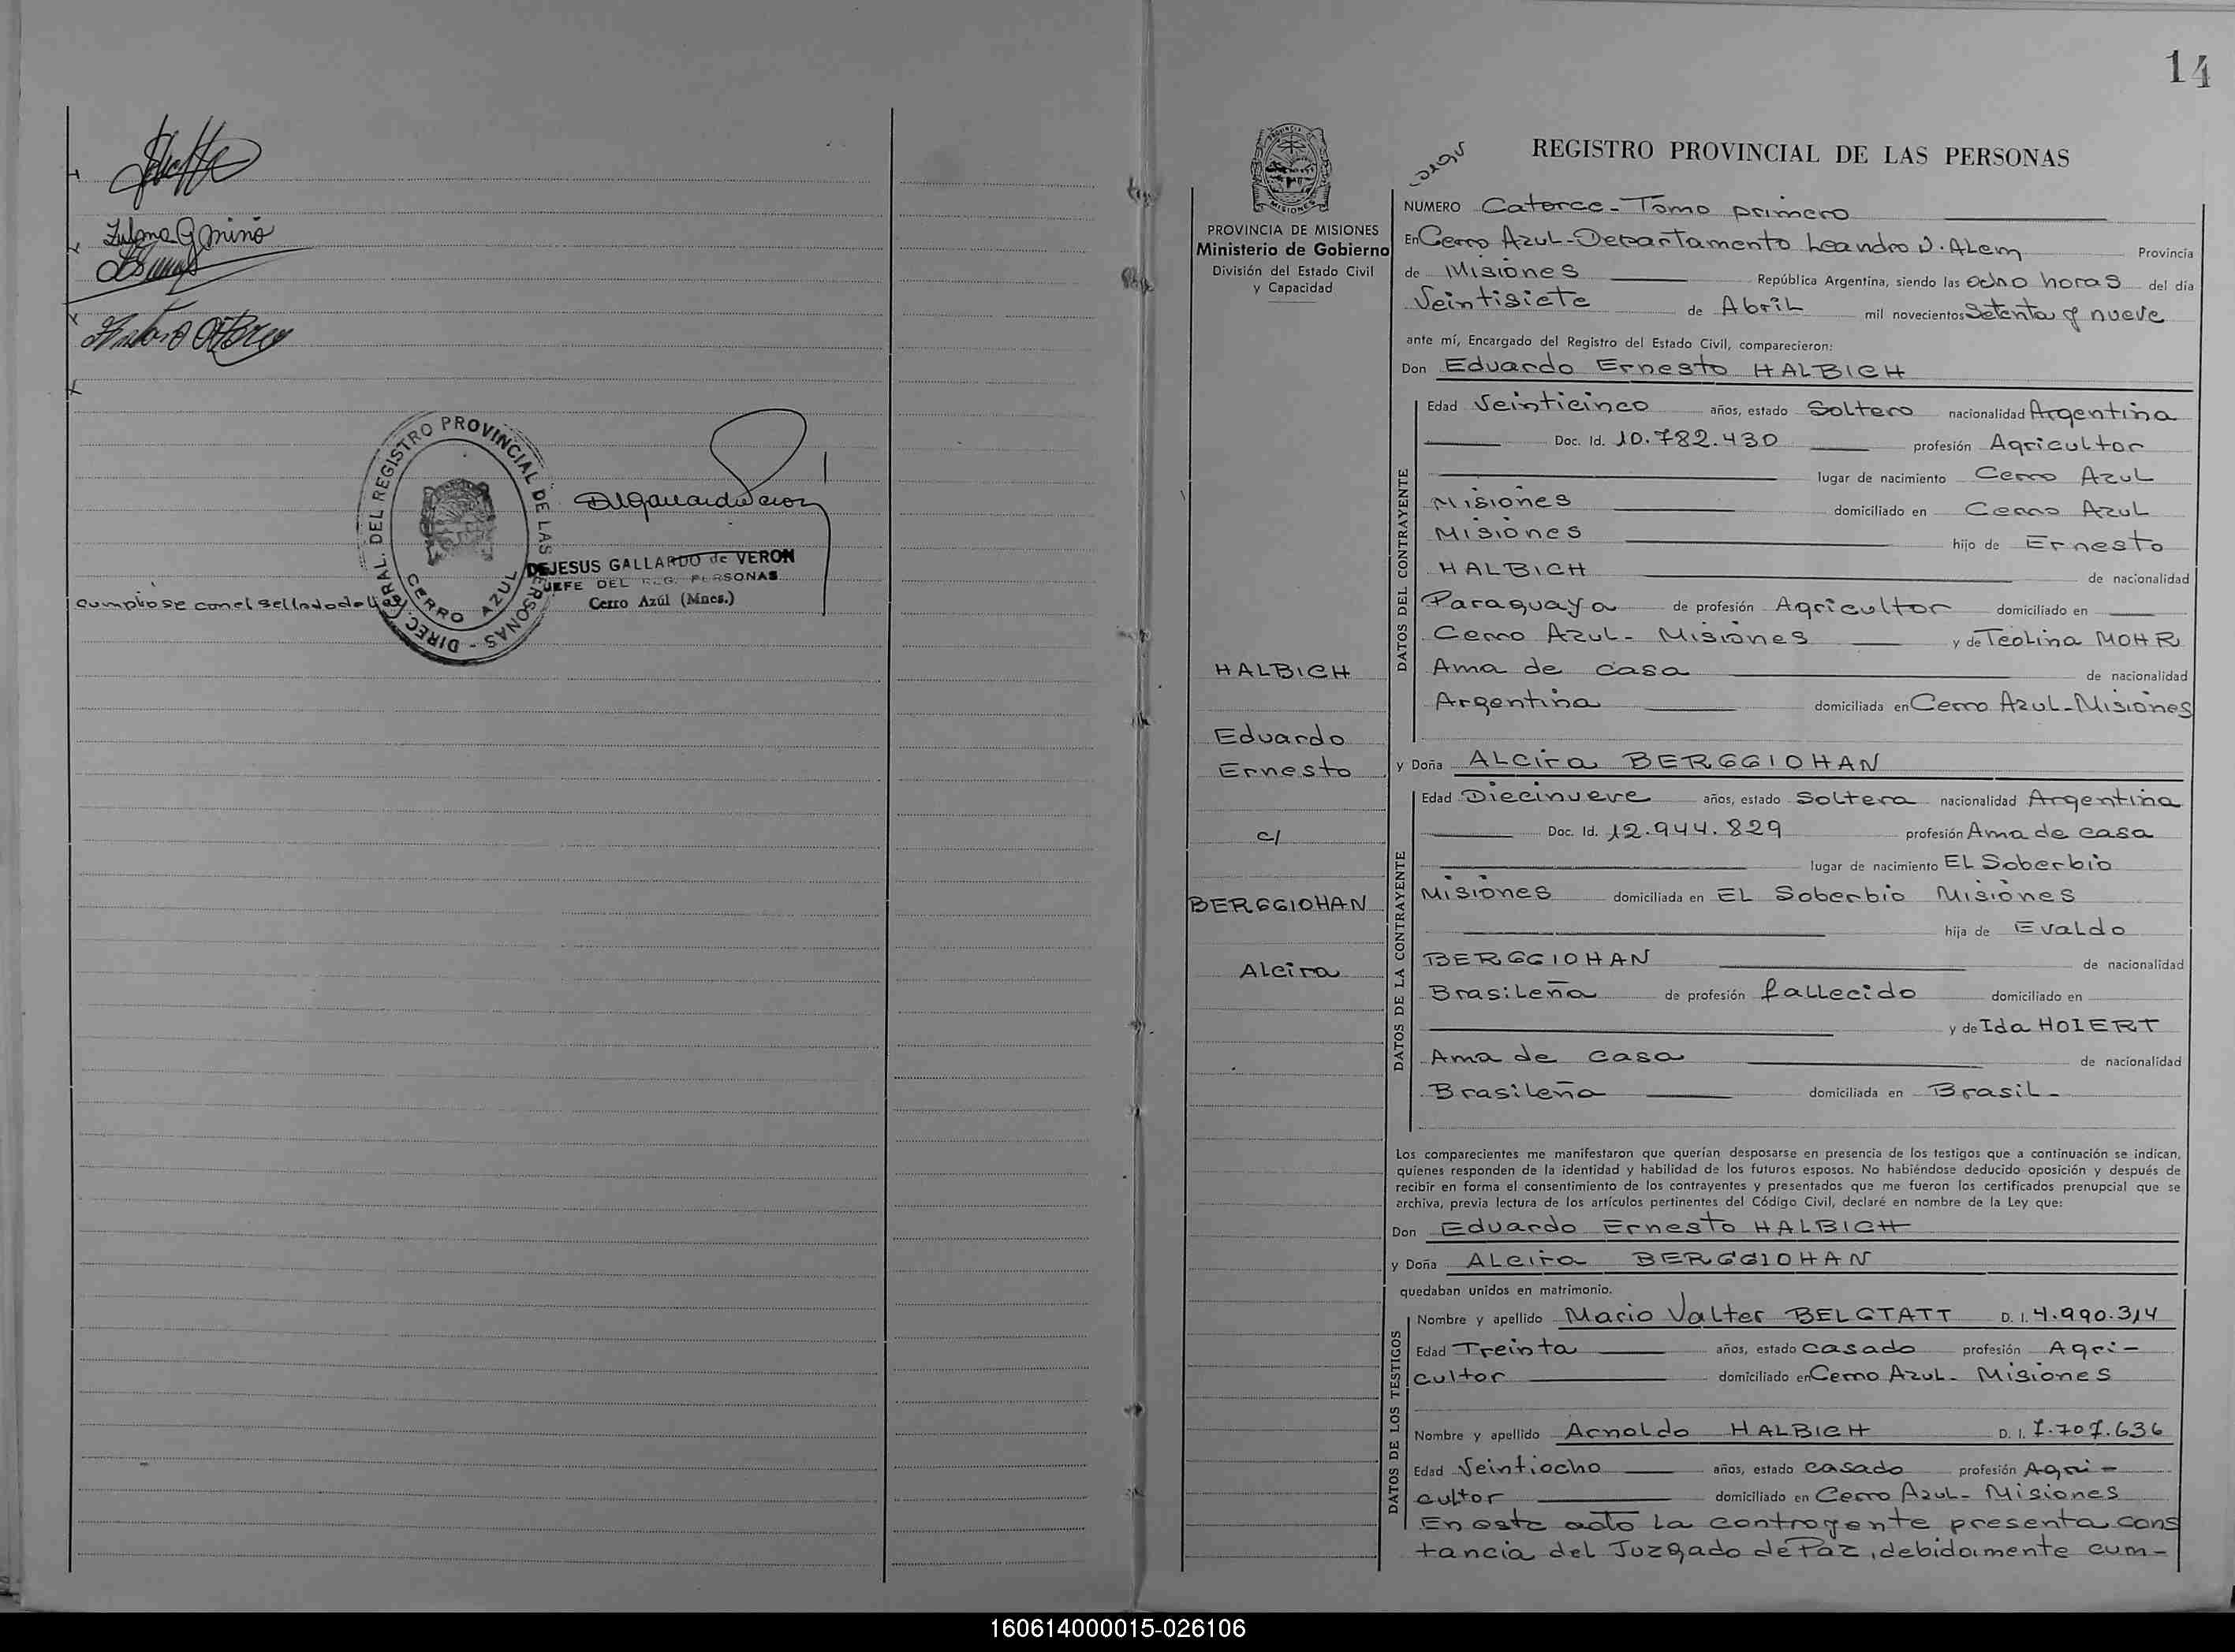 Zulema G Mino
DEJESUS GALLARDO de VERON
JEFE DEL REG. PERSONAS
Cerro Azúl (Mnes.)
DIREC. GRAL. DEL REGISTRO PROVINCIAL DE LAS PERSONAS -
CERRO AZUL
cumpliose con el sellado de ley
14
PROVINCIA DE MISIONES
Ministerio de Gobierno
División del Estado Civil
y Capacidad
HALBICH
Eduardo
Ernesto
c/
BERGGIOHAN
Alcira
REGISTRO PROVINCIAL DE LAS PERSONAS
NUMERO Catorce - Tomo primero
En Cerro Azul - Departamento Leandro N. Alem Provincia
de Misiones República Argentina, siendo las ocho horas del día
Veintisiete de Abril mil novecientos Setenta y nueve
ante mí, Encargado del Registro del Estado Civil, comparecieron:
Don Eduardo Ernesto HALBICH
DATOS DEL CONTRAYENTE
Edad Veinticinco años, estado Soltero nacionalidad Argentina
Doc. Id. 10.782.430 profesión Agricultor
lugar de nacimiento Cerro Azul
Misiones domiciliado en Cerro Azul
Misiones hijo de Ernesto
HALBICH de nacionalidad
Paraguaya de profesión Agricultor domiciliado en
Cerro Azul - Misiones y de Teolina MOHR
Ama de casa de nacionalidad
Argentina domiciliada en Cerro Azul - Misiones
y Doña Alcira BERGGIOHAN
DATOS DE LA CONTRAYENTE
Edad Diecinueve años, estado Soltera nacionalidad Argentina
Doc. Id. 12.944.829 profesión Ama de casa
lugar de nacimiento El Soberbio
Misiones domiciliada en El Soberbio Misiones
hija de Evaldo
BERGGIOHAN de nacionalidad
Brasileña de profesión fallecido domiciliado en
y de Ida HOIERT
Ama de casa de nacionalidad
Brasileña domiciliada en Brasil -
Los comparecientes me manifestaron que querían desposarse en presencia de los testigos que a continuación se indican,
quienes responden de la identidad y habilidad de los futuros esposos. No habiéndose deducido oposición y después de
recibir en forma el consentimiento de los contrayentes y presentados que me fueron los certificados prenupcial que se
archiva, previa lectura de los artículos pertinentes del Código Civil, declaré en nombre de la Ley que:
Don Eduardo Ernesto HALBICH
y Doña Alcira BERGGIOHAN
quedaban unidos en matrimonio.
DATOS DE LOS TESTIGOS
Nombre y apellido Mario Valter BELGTATT D. I. 4.990.314
Edad Treinta años, estado casado profesión Agri-
cultor domiciliado en Cerro Azul - Misiones
Nombre y apellido Arnoldo HALBICH D. I. 7.707.636
Edad Veintiocho años, estado casado profesión Agri-
cultor domiciliado en Cerro Azul - Misiones
En este acto la contrayente presenta cons
tancia del Juzgado de Paz, debidamente cum-
160614000015-026106